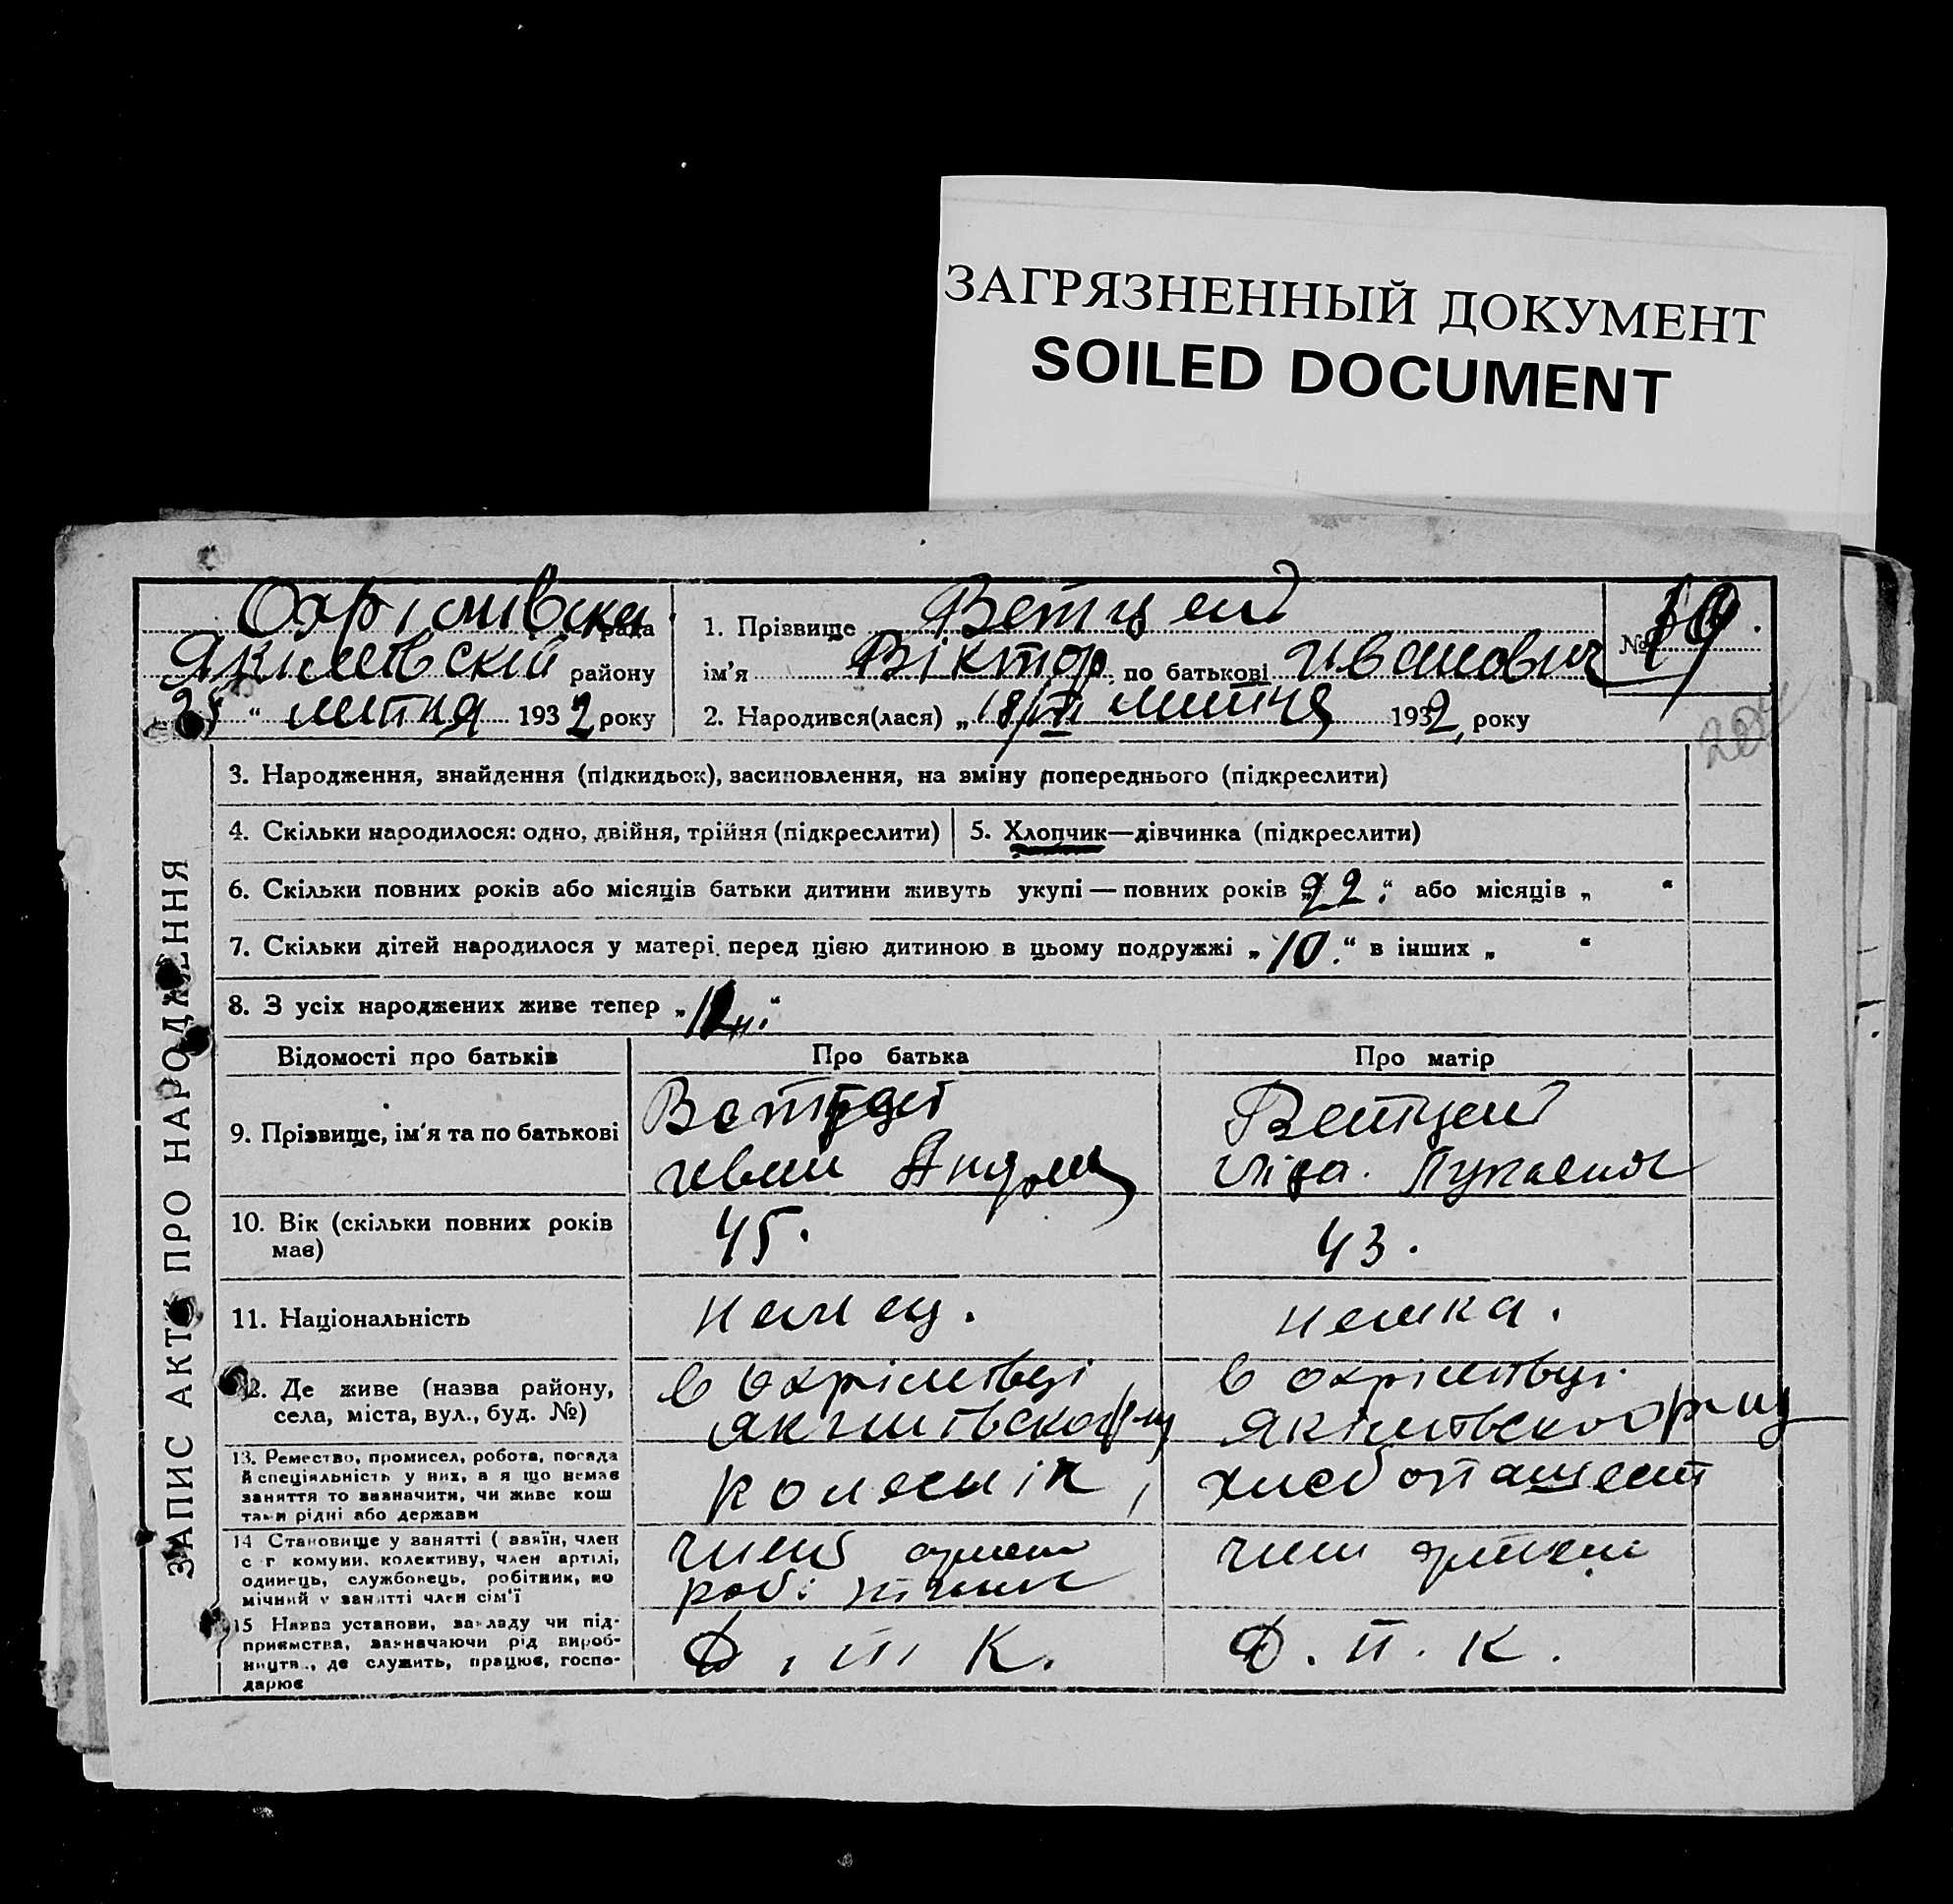 ЗАГРЯЗНЕННЫЙ ДОКУМЕНТ
SOILED DOCUMENT
Охрімівська рада
Якимівській району
"25" липня 1932 року
1. Прізвище Ветцель
ім'я Віктор по батькові Иванович
№ 19.
2. Народився(лася) „18/VII липня 1932, року
202
3. Народження, знайдення (підкидьок), засиновлення, на зміну попереднього (підкреслити)
4. Скільки народилося: одно, двійня, трійня (підкреслити)
5. Хлопчик—дівчинка (підкреслити)
6. Скільки повних років або місяців батьки дитини живуть укупі — повних років „22." або місяців „ "
7. Скільки дітей народилося у матері перед цією дитиною в цьому подружжі „10." в інших „ "
8. З усіх народжених живе тепер „ "
ЗАПИС АКТУ ПРО НАРОДЖЕННЯ
Відомості про батьків
Про батька
Про матір
9. Прізвище, ім'я та по батькові
Ветцель
Иван
Ветцель
Ліда.
10. Вік (скільки повних років має)
45.
43.
11. Національність
немец.
немка.
12. Де живе (назва району,
села, міста, вул., буд. №)
в Охрімівці
Якимівского р-ну
в Охрімівці
Якімівского р-ну
13. Ремество, промисел, робота, посада
й спеціяльність у них, а я що немає
заняття то зазначити, чи живе кош
тами рідні або держави
колеснік,
хлеборпашест
14 Становище у занятті (хазяїн, член
с-г комуни, колективу, член артілі,
одинець, службовець, робітник, по
мічний у занятті член сім'ї
член артелі
робітник
член артели
15 Назва установи, закладу чи під-
приємства, зазначаючи рід вироб-
ництв., де служить, працює, госпо-
дарює
Ф. П К.
Ф. П. К.